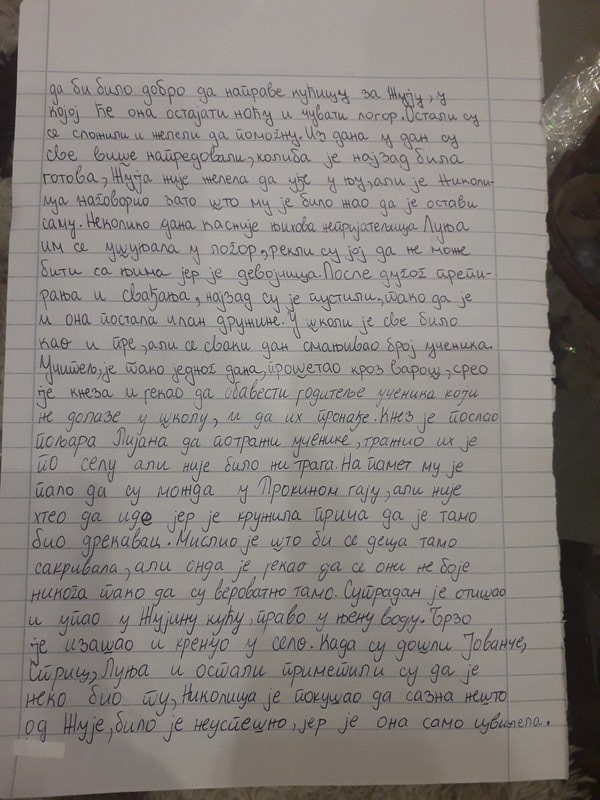 да би било добро да направе кућицу за Жују, у
којој ће она остајати ноћу и чувати логор. Остали су
се сложили и желели да помогну. Из дана у дан су
све више напредовали, колиба је најзад била
готова, Жуја није желела да уђе у њу, али је Николи-
ца наговорио зато што му је било жао да је остави
саму. Неколико дана касније њихова непријатељица Луња
им се ушуњала у логор, рекли су јој да не може
бити са њима јер је девојчица. После дугог препи-
рања и свађања, најзад су је пустили, тако да је
и она постала члан дружине. У школи је све било
као и пре, али се сваки дан смањивао број ученика.
Учитељ, је тако једног дана, прошетао кроз варош, срео
је кнеза и рекао да обавести родитеље ученика који
не долазе у школу, и да их пронађе. Кнез је послао
пољара Лијана да потражи ученике, тражио их је
по селу али није било ни трага. На памет му је
пало да су можда у Прокином гају, али није
хтео да иде јер је кружила прича да је тамо
био дрекавац. Мислио је што би се деца тамо
сакривала, али онда је рекао да се они не боје
никога тако да су вероватно тамо. Сутрадан је отишао
и упао у Жујину кућу, право у њену воду. Брзо
је изашао и кренуо у село. Када су дошли Јованче,
Стриц, Луња и остали приметили су да је
неко био ту, Николица је покушао да сазна нешто
од Жује, било је неуспешно, јер је она само цвилела.